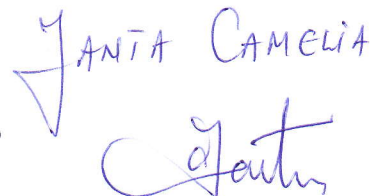 JANTA CAMELIA